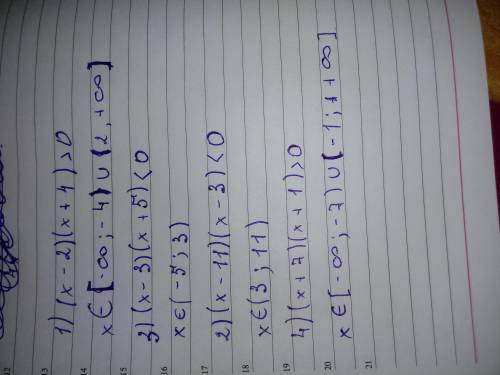 1) (x - 2)(x + 4) > 0
x ∈ [-∞; -4) ∪ (2, +∞]
3) (x - 3)(x + 5) < 0
x ∈ (-5; 3)
2) (x - 11)(x - 3) < 0
x ∈ (3; 11)
4) (x + 7)(x + 1) > 0
x ∈ [-∞; -7) ∪ (-1; +∞]
12
13
14
15
16
17
18
19
20
21